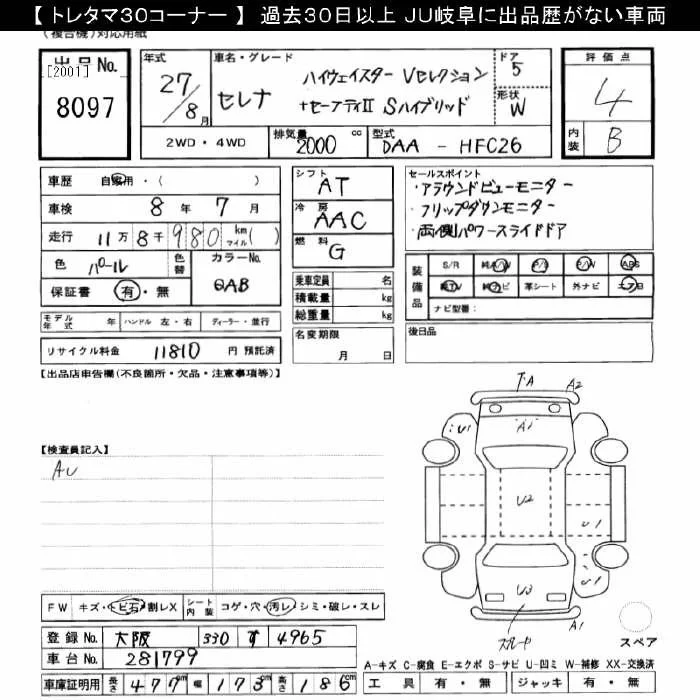 【 トレタマ30コーナー 】 過去30日以上 JU岐阜に出品歴がない車両
(複合機)対応用紙
出品No.
[2001]
8097
年式
27/8月
車名・グレード
セレナ
ハイウェイスター Vセレクション
+セーフティII Sハイブリッド
ドア
5
形状
W
評価点
4
内装
B
2WD・4WD
排気量
2000
cc
型式
DAA - HFC26
車歴 自家用・( )
車検 8年 7月
走行 11万 8千 980 km マイル( )
色 パール
色替
カラーNo.
QAB
保証書 有・無
シフト
AT
冷房
AAC
燃料
G
乗車定員 名
積載量 kg
総重量 kg
セールスポイント
・アラウンドビューモニター
・フリップダウンモニター
・両側パワースライドドア
装備品
S/R 純A/W P/S P/W ABS
純TV 純ナビ 革シート 外ナビ エアB
ナビ型番:
モデル年式 年 ハンドル 左・右 ディーラー・並行
リサイクル料金 11810 円 預託済
名変期限
月 日
後日品
【出品店申告欄(不良箇所・欠品・注意事項等)】
【検査員記入】
AU
下A
A2
U1
A1
U2
U1
U1
U3
A1
スペア
FW キズ・トビ石・割レX シート内装 コゲ・穴・汚レ・シミ・破レ・スレ
登録No. 大阪 330 す 4965
車台No. 281799
車庫証明用 長さ 477cm 幅 173cm 高さ 186cm
A-キズ C-腐食 E-エクボ S-サビ U-凹ミ W-補修 XX-交換済
工具 有・無 ジャッキ 有・無